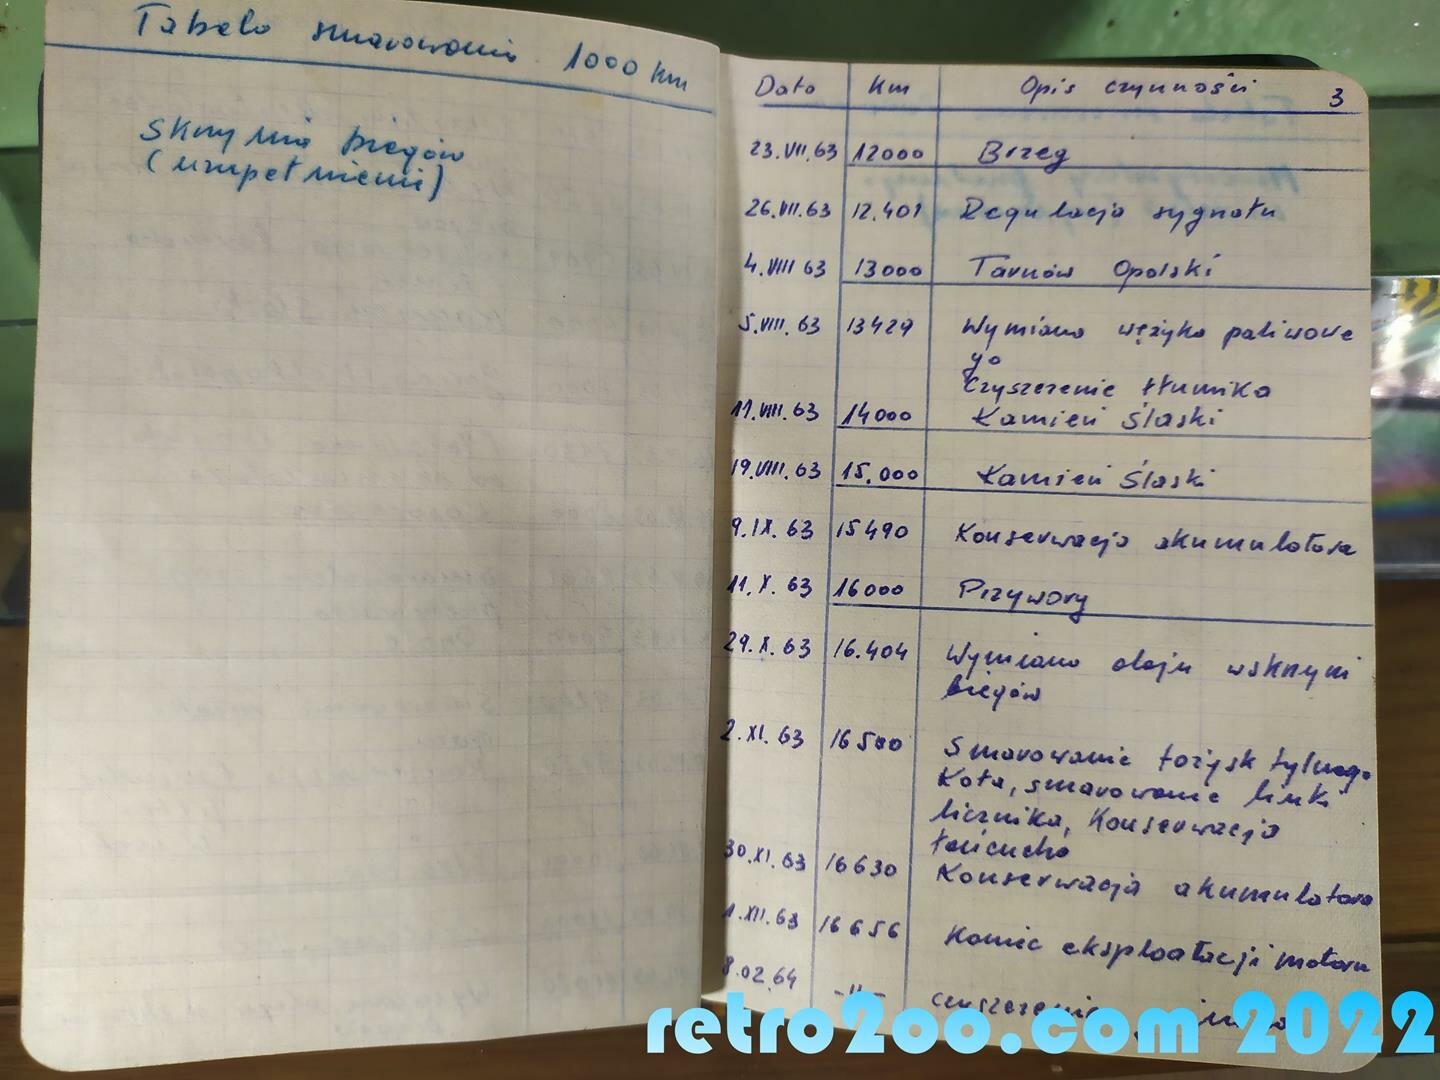 Tabela smarowania 1000 km
Skrzynia biegów
(uzupełnienie)
Data Km Opis czynności 3
23.VII.63 12000 Brzeg
26.VII.63 12.401 Regulacja sygnału
4.VIII 63 13000 Tarnów Opolski
5.VIII.63 13429 Wymiana wężyka paliwowe
go
Czyszczenie tłumika
11.VIII.63 14000 Kamień Śląski
19.VIII.63 15.000 Kamień Śląski
9.IX.63 15490 Konserwacja akumulatora
11.X.63 16000 Przywory
29.X.63 16.404 Wymiana oleju w skrzyni
biegów
2.XI.63 16500 Smarowanie łożysk tylnego
koła, smarowanie linki
licznika, konserwacja
łańcucha
30.XI.63 16630 Konserwacja akumulatora
1.XII.63 16656 Koniec eksploatacji motoru
8.02.64 -"- czyszczenie
retro2oo.com 2022